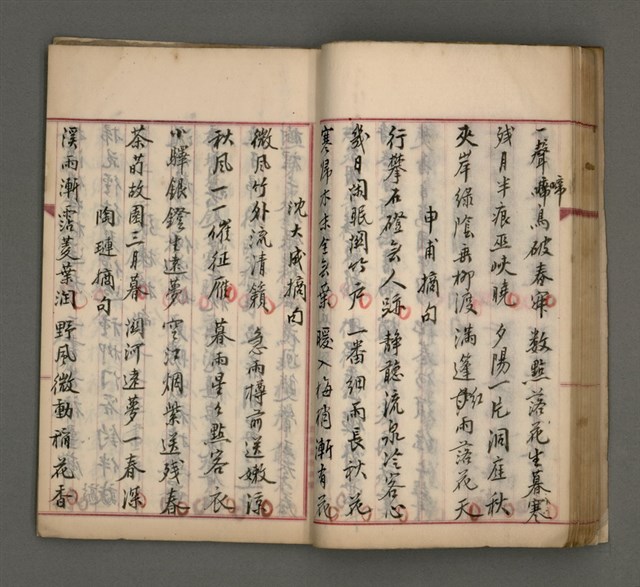 一聲啼鳥破春寐 數點落花生暮寒
残月半痕巫峽曉 夕陽一片洞庭秋
夾岸綠陰垂柳渡 滿篷紅雨落花天
申甫摘句
行攀石磴無人跡 静聽流泉冷客心
幾日閑眠閑竹戶 一番細雨長秋花
寒歸木末全無葉 暖入梅梢漸有花
沈大成摘句
微風竹外流清籟 急雨樽前送嫩涼
秋風一一催征雁 暮雨星々點客衣
小驛銀鐙生遠夢 空江烟紫送残春
茶竹故園三月暮 關河遠夢一春深
陶璉摘句
溪雨漸霑菱葉潤 野風微動稻花香